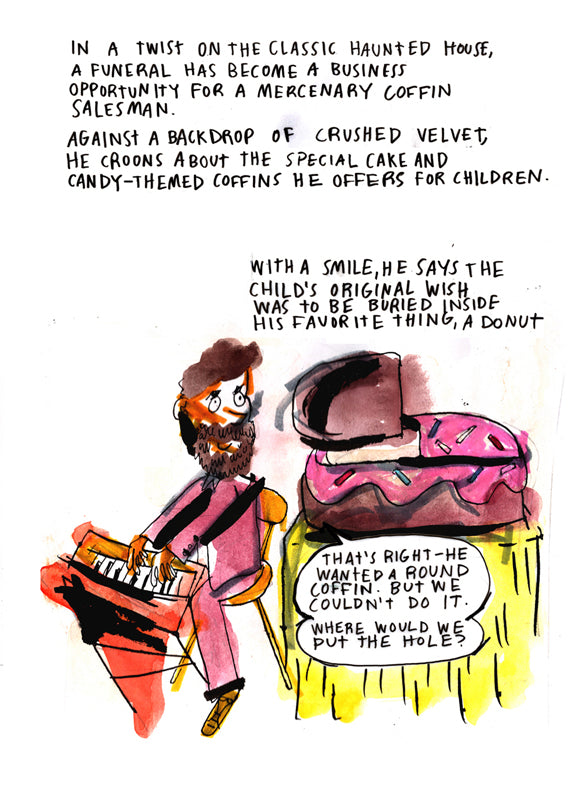 IN A TWIST ON THE CLASSIC HAUNTED HOUSE,
A FUNERAL HAS BECOME A BUSINESS
OPPORTUNITY FOR A MERCENARY COFFIN
SALESMAN.
AGAINST A BACKDROP OF CRUSHED VELVET,
HE CROONS ABOUT THE SPECIAL CAKE AND
CANDY-THEMED COFFINS HE OFFERS FOR CHILDREN.
WITH A SMILE, HE SAYS THE
CHILD'S ORIGINAL WISH
WAS TO BE BURIED INSIDE
HIS FAVORITE THING, A DONUT
THAT'S RIGHT-HE
WANTED A ROUND
COFFIN. BUT WE
COULDN'T DO IT.
WHERE WOULD WE
PUT THE HOLE?